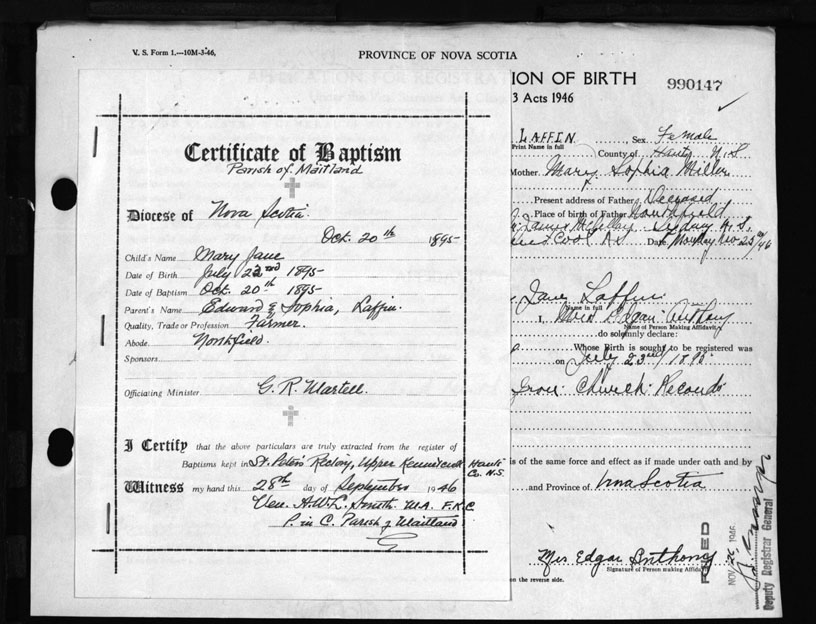 V. S. Form 1.—10M-3-46.
PROVINCE OF NOVA SCOTIA
ION OF BIRTH
990147
3 Acts 1946
Certificate of Baptism
Parish of Maitland
Diocese of Nova Scotia
Oct. 20th 1895
Child's Name Mary Jane
Date of Birth July 22nd 1895
Date of Baptism Oct. 20th 1895
Parent's Name Edward & Sophia, Laffin
Quality, Trade or Profession Farmer.
Abode Northfield.
Sponsors
Officiating Minister G. R. Martell.
I Certify that the above particulars are truly extracted from the register of
Baptisms kept in St. Peter's Rectory, Upper Kennetcook Hants Co. N.S.
Witness my hand this 28th day of September 1946
Ven. A.W.L. Smith. M.A. F.K.C
P. in C. Parish of Maitland
LAFFIN, Sex Female
Print Name in full
County of Hants N.S
Mother Mary Sophia Miller
Present address of Father Deceased
Place of birth of Father Northfield
Sydney N.S.
Date Monday Nov 25th/46
Jane Laffin
Name in full
I, Edgar Anthony
Name of Person Making Affidavit
do solemnly declare:
Whose Birth is sought to be registered was
on July 23nd/1895
from Church Records
is of the same force and effect as if made under oath and by
and Province of Nova Scotia
Mrs Edgar Anthony
Signature of Person making Affidavit
on the reverse side.
NOV 26 1946
Deputy Registrar General